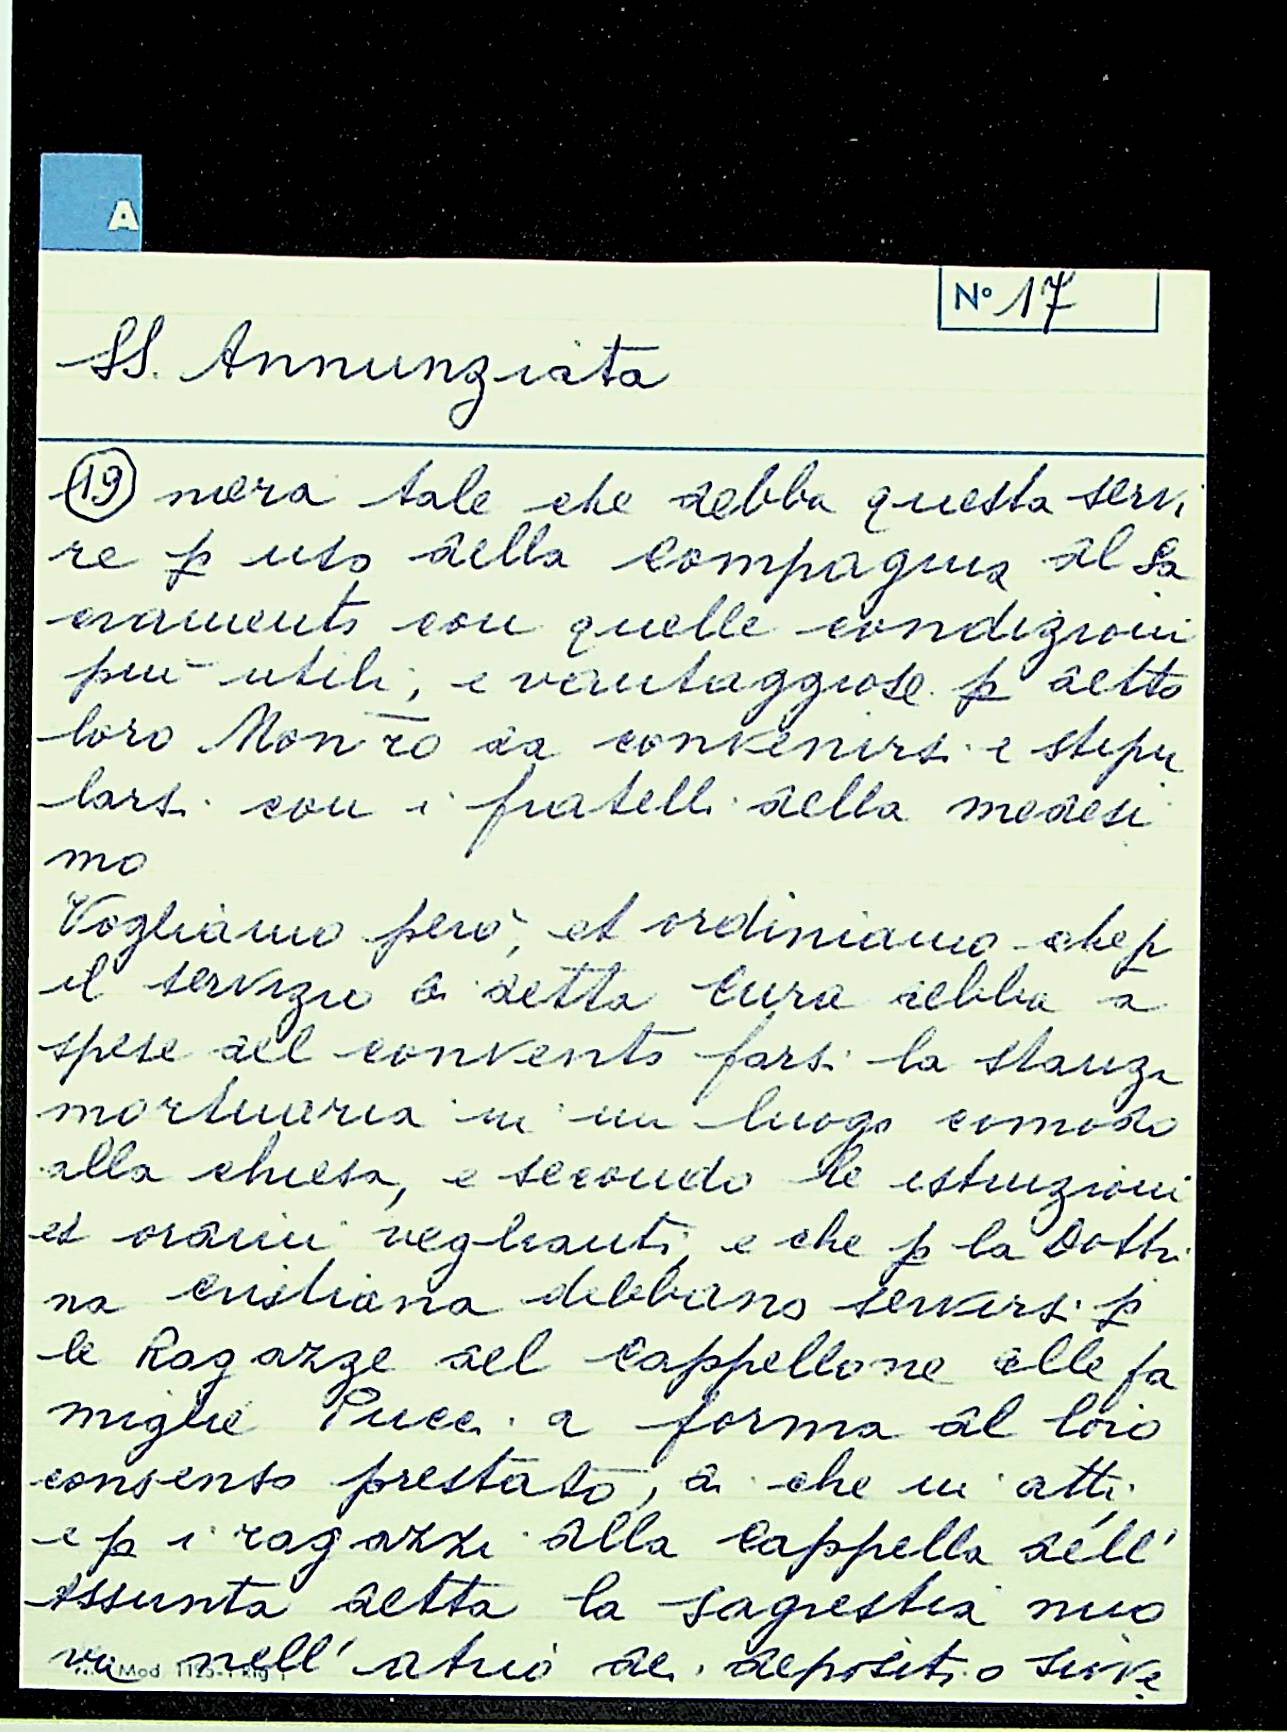 A
N° 17
SS. Annunziata
(19) niera tale che debba questa servi
re p uso della Compagnia del Sa
cramento con quelle condizioni
più utili, e vantaggiose p detto
loro Mon̅ro da convenirsi e stipu
larsi con i fratelli della medesi
mo
Vogliamo però, et ordiniamo che p
il servizio di detta Cura debba a
spese del convento farsi la stanza
mortuaria in un luogo comodo
alla chiesa, e secondo le istruzioni
et ordini veglianti, e che p la Dottri
na Cristiana debbano servirsi p
le Ragazze del Cappellone delle fa
miglie Pucci a forma del loro
consenso prestato, di che in atti,
e p i ragazzi della Cappella dell'
Assunta detta la sagrestia nuo
va nell' atrio dei depositi o sive
Mod. 1155-1 Rig.